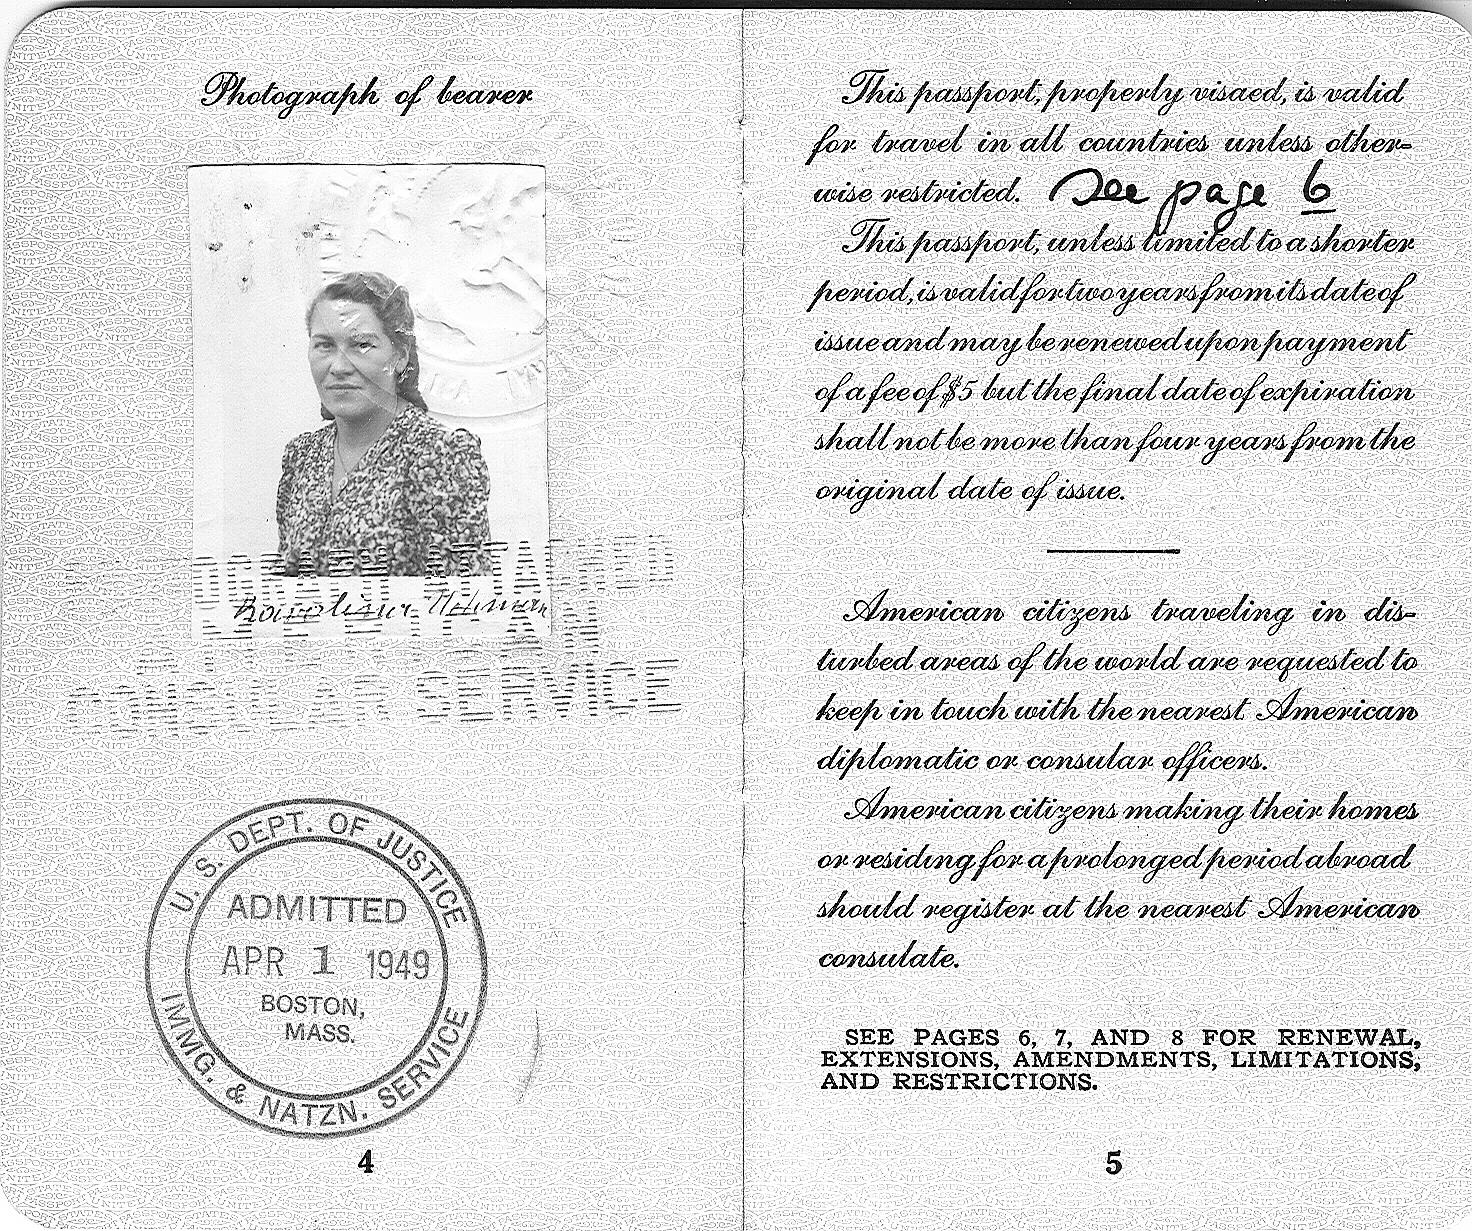 Photograph of bearer
PHOTOGRAPH ATTACHED
AMERICAN
CONSULAR SERVICE
U. S. DEPT. OF JUSTICE
ADMITTED
APR 1 1949
BOSTON,
MASS.
IMMG. & NATZN. SERVICE
4
This passport, properly visaed, is valid
for travel in all countries unless other-
wise restricted. See page 6
This passport, unless limited to a shorter
period, is valid for two years from its date of
issue and may be renewed upon payment
of a fee of $5 but the final date of expiration
shall not be more than four years from the
original date of issue.
American citizens traveling in dis-
turbed areas of the world are requested to
keep in touch with the nearest American
diplomatic or consular officers.
American citizens making their homes
or residing for a prolonged period abroad
should register at the nearest American
consulate.
SEE PAGES 6, 7, AND 8 FOR RENEWAL,
EXTENSIONS, AMENDMENTS, LIMITATIONS,
AND RESTRICTIONS.
5